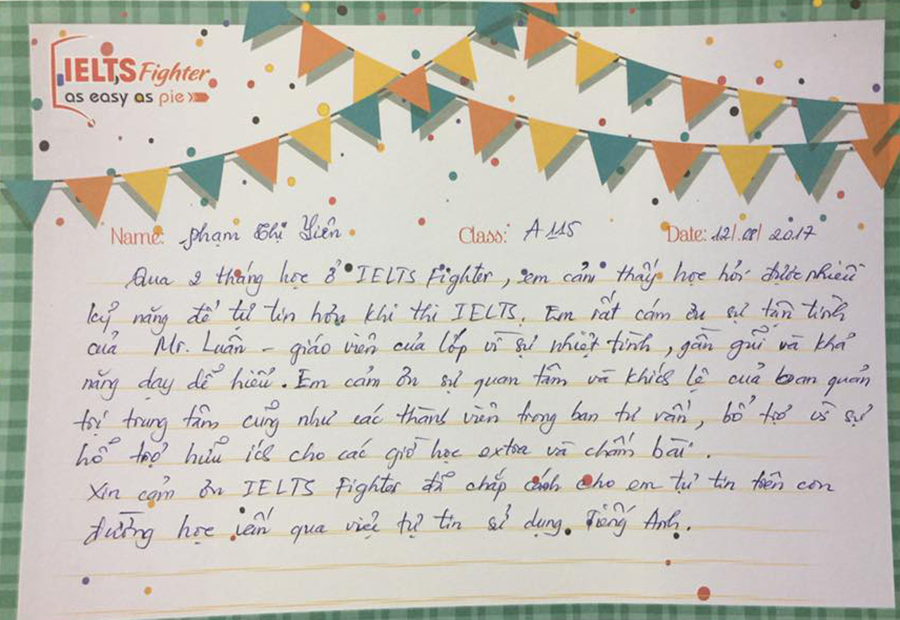 IELTS Fighter
as easy as pie
Name: Phạm Thị Yiên Class: A 115 Date: 12/ 08/ 2017
Qua 2 tháng học ở IELTS Fighter, em cảm thấy học hỏi được nhiều
kỹ năng để tự tin hơn khi thi IELTS. Em rất cám ơn sự tận tình
của Mr. Luân - giáo viên của lớp vì sự nhiệt tình, gần gũi và khả
năng dạy dễ hiểu. Em cảm ơn sự quan tâm và khích lệ của ban quản
trị trung tâm cũng như các thành viên trong ban tư vấn, bổ trợ vì sự
hỗ trợ hữu ích cho các giờ học extra và chấm bài.
Xin cảm ơn IELTS Fighter đã chắp cánh cho em tự tin trên con
đường học vấn qua việc tự tin sử dụng Tiếng Anh.